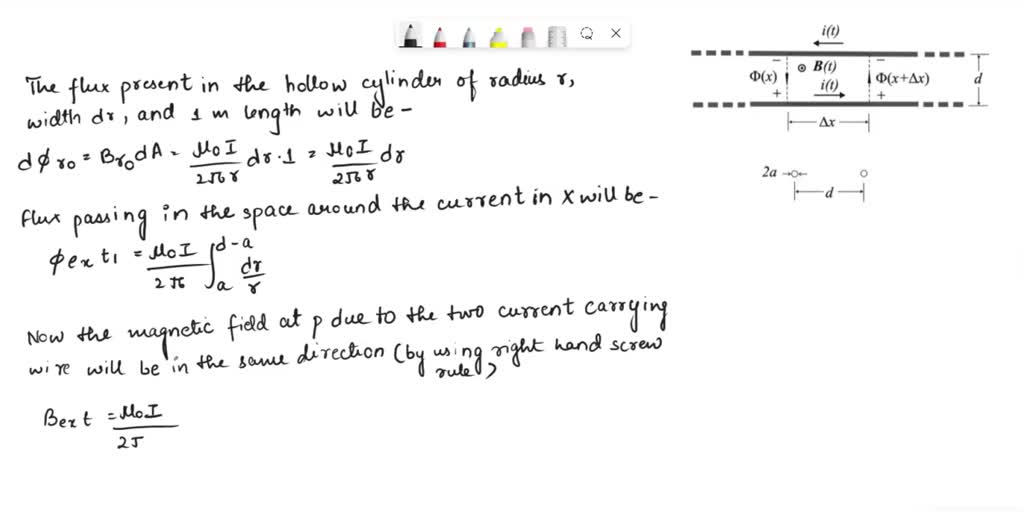 The flux present in the hollow cylinder of radius r,
width dr, and 1 m length will be -
dϕr₀ = Br₀dA = μ₀I/2πr dr·1 = μ₀I/2πr dr
flux passing in the space around the current in X will be -
ϕext₁ = μ₀I/2π ∫ₐ^(d-a) dr/r
Now the magnetic field at p due to the two current carrying
wire will be in the same direction (by using right hand screw
rule)
Bext = μ₀I/2
i(t)
B(t)
Φ(x)
i(t)
Φ(x+Δx)
d
− −
+ +
Δx
2a
d